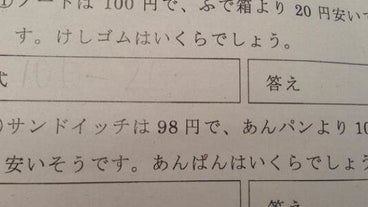 ①ノートは 100 円で、ふで箱より 20 円安いで
す。けしゴムはいくらでしょう。
式 答え
)サンドイッチは 98 円で、あんパンより 10
安いそうです。あんぱんはいくらでしょう
答え